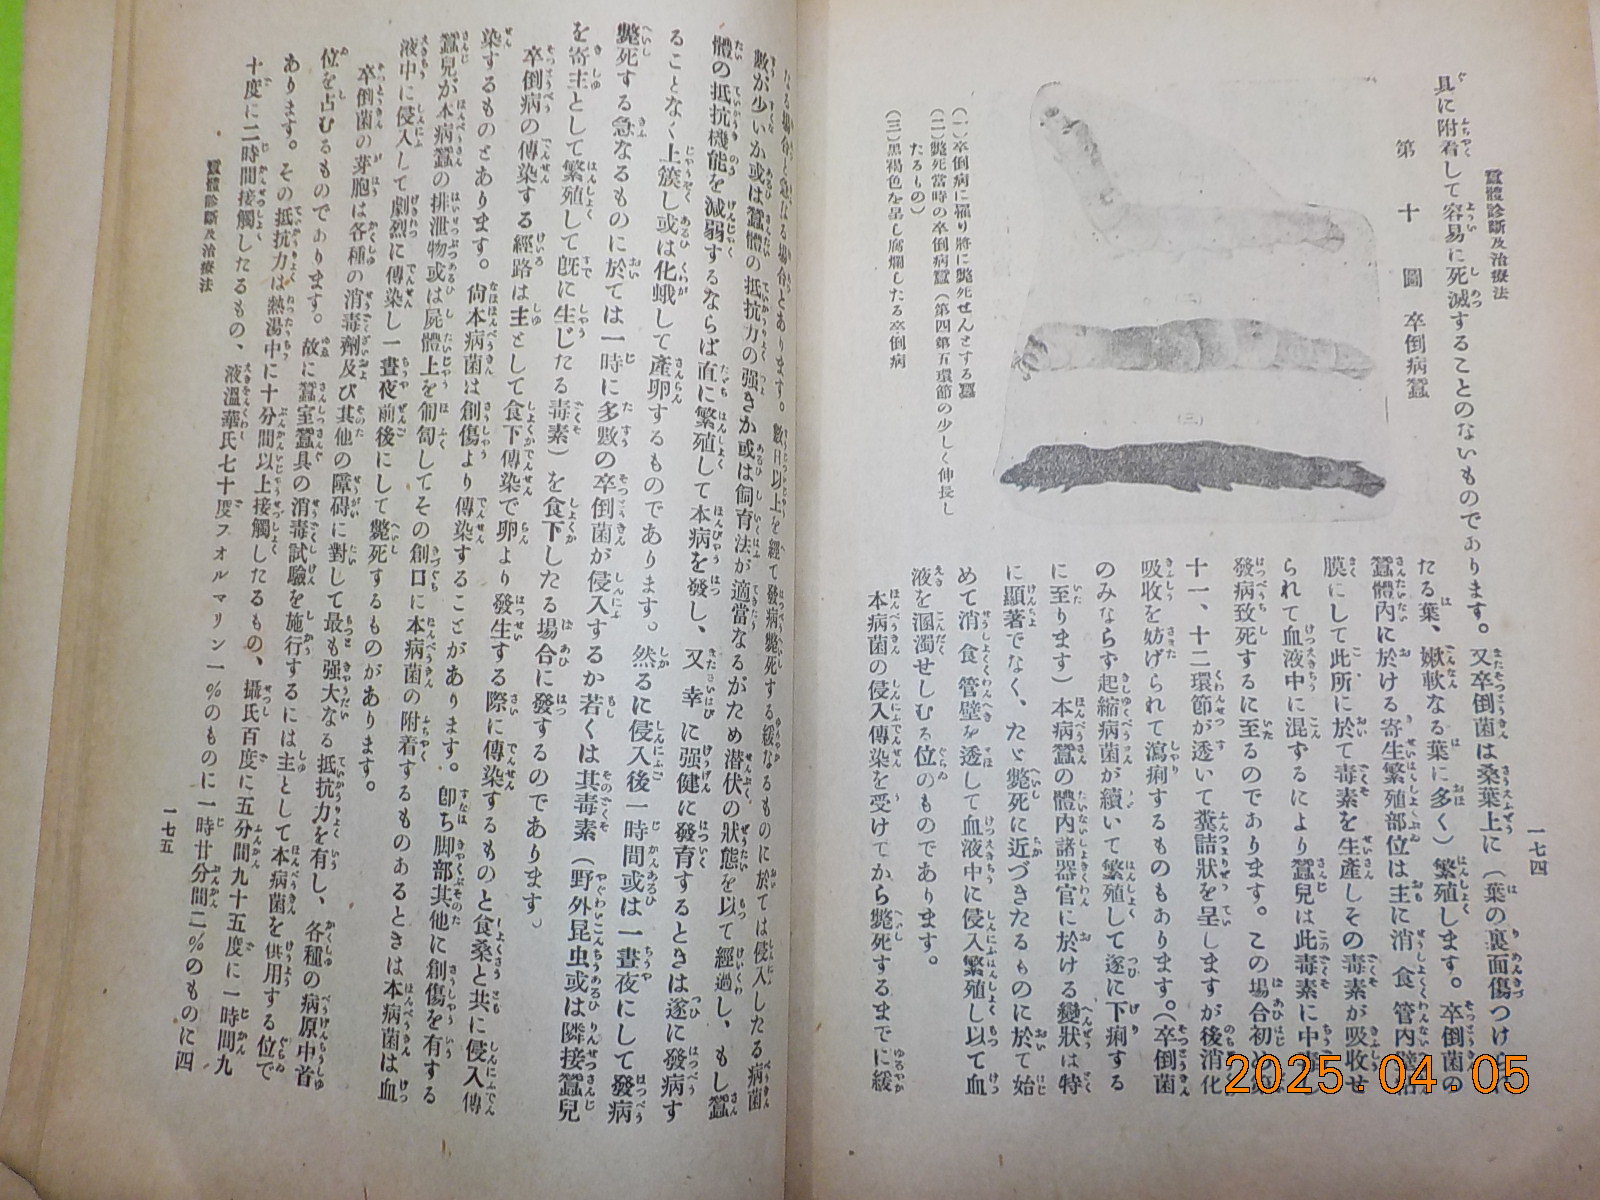 蠶體診斷及治療法
一七四
具に附着して容易に死滅することのないものであります。又卒倒菌は桑葉上に（葉の裏面傷つけ
たる葉、嫩軟なる葉に多く）繁殖します。卒倒菌の
蠶體内に於ける寄生繁殖部位は主に消食管内壁
膜にして此所に於て毒素を生産しその毒素が吸收せ
られて血液中に混ずるにより蠶兒は此毒素に中
發病致死するに至るのであります。この場合初
十一、十二環節が透いて糞詰狀を呈しますが後消化
吸收を妨げられて瀉痢するものもあります。（卒倒菌
のみならず起縮病菌が續いて繁殖して遂に下痢する
に至ります）本病蠶の體内諸器官に於ける變狀は特
に顯著でなく、たゞ斃死に近づきたるものに於て始
めて消食管壁を透して血液中に侵入繁殖し以て血
液を溷濁せしむる位のものであります。
本病菌の侵入傳染を受けてから斃死するまでに緩
第十圖 卒倒病蠶
(二)
(三)
(一)卒倒病に罹り將に斃死せんとする蠶
(二)斃死當時の卒倒病蠶（第四第五環節の少しく伸長し
たるもの）
(三)黑褐色を呈し腐爛したる卒倒病
なる場合と急なる場合とあります。數日以上を經て發病斃死する緩なるものに於ては侵入したる病菌
數が少いか或は蠶體の抵抗力の强きか或は飼育法が適當なるがため潜伏の狀態を以て經過し、もし蠶
體の抵抗機能を減弱するならば直に繁殖して本病を發し、又幸に强健に發育するときは遂に發病す
ることなく上簇し或は化蛾して產卵するものであります。然るに侵入後一時間或は一晝夜にして發病
斃死する急なるものに於ては一時に多數の卒倒菌が侵入するか若くは其毒素（野外昆虫或は隣接蠶兒
を寄主として繁殖して旣に生じたる毒素）を食下したる場合に發するのであります。
卒倒病の傳染する經路は主として食下傳染で卵より發生する際に傳染するものと食桑と共に侵入傳
染するものとあります。尙本病菌は創傷より傳染することがあります。卽ち脚部其他に創傷を有する
蠶兒が本病蠶の排泄物或は屍體上を匍匐してその創口に本病菌の附着するものあるときは本病菌は血
液中に侵入して劇烈に傳染し一晝夜前後にして斃死するものがあります。
卒倒菌の芽胞は各種の消毒劑及び其他の障碍に對して最も强大なる抵抗力を有し、各種の病原中首
位を占むるものであります。故に蠶室蠶具の消毒試驗を施行するには主として本病菌を供用する位で
あります。その抵抗力は熱湯中に十分間以上接觸したるもの、攝氏百度に五分間九十五度に一時間九
十度に二時間接觸したるもの、液溫華氏七十度フオルマリン一％のものに一時廿分間二％のものに四
蠶體診斷及治療法
一七五
2025.04.05